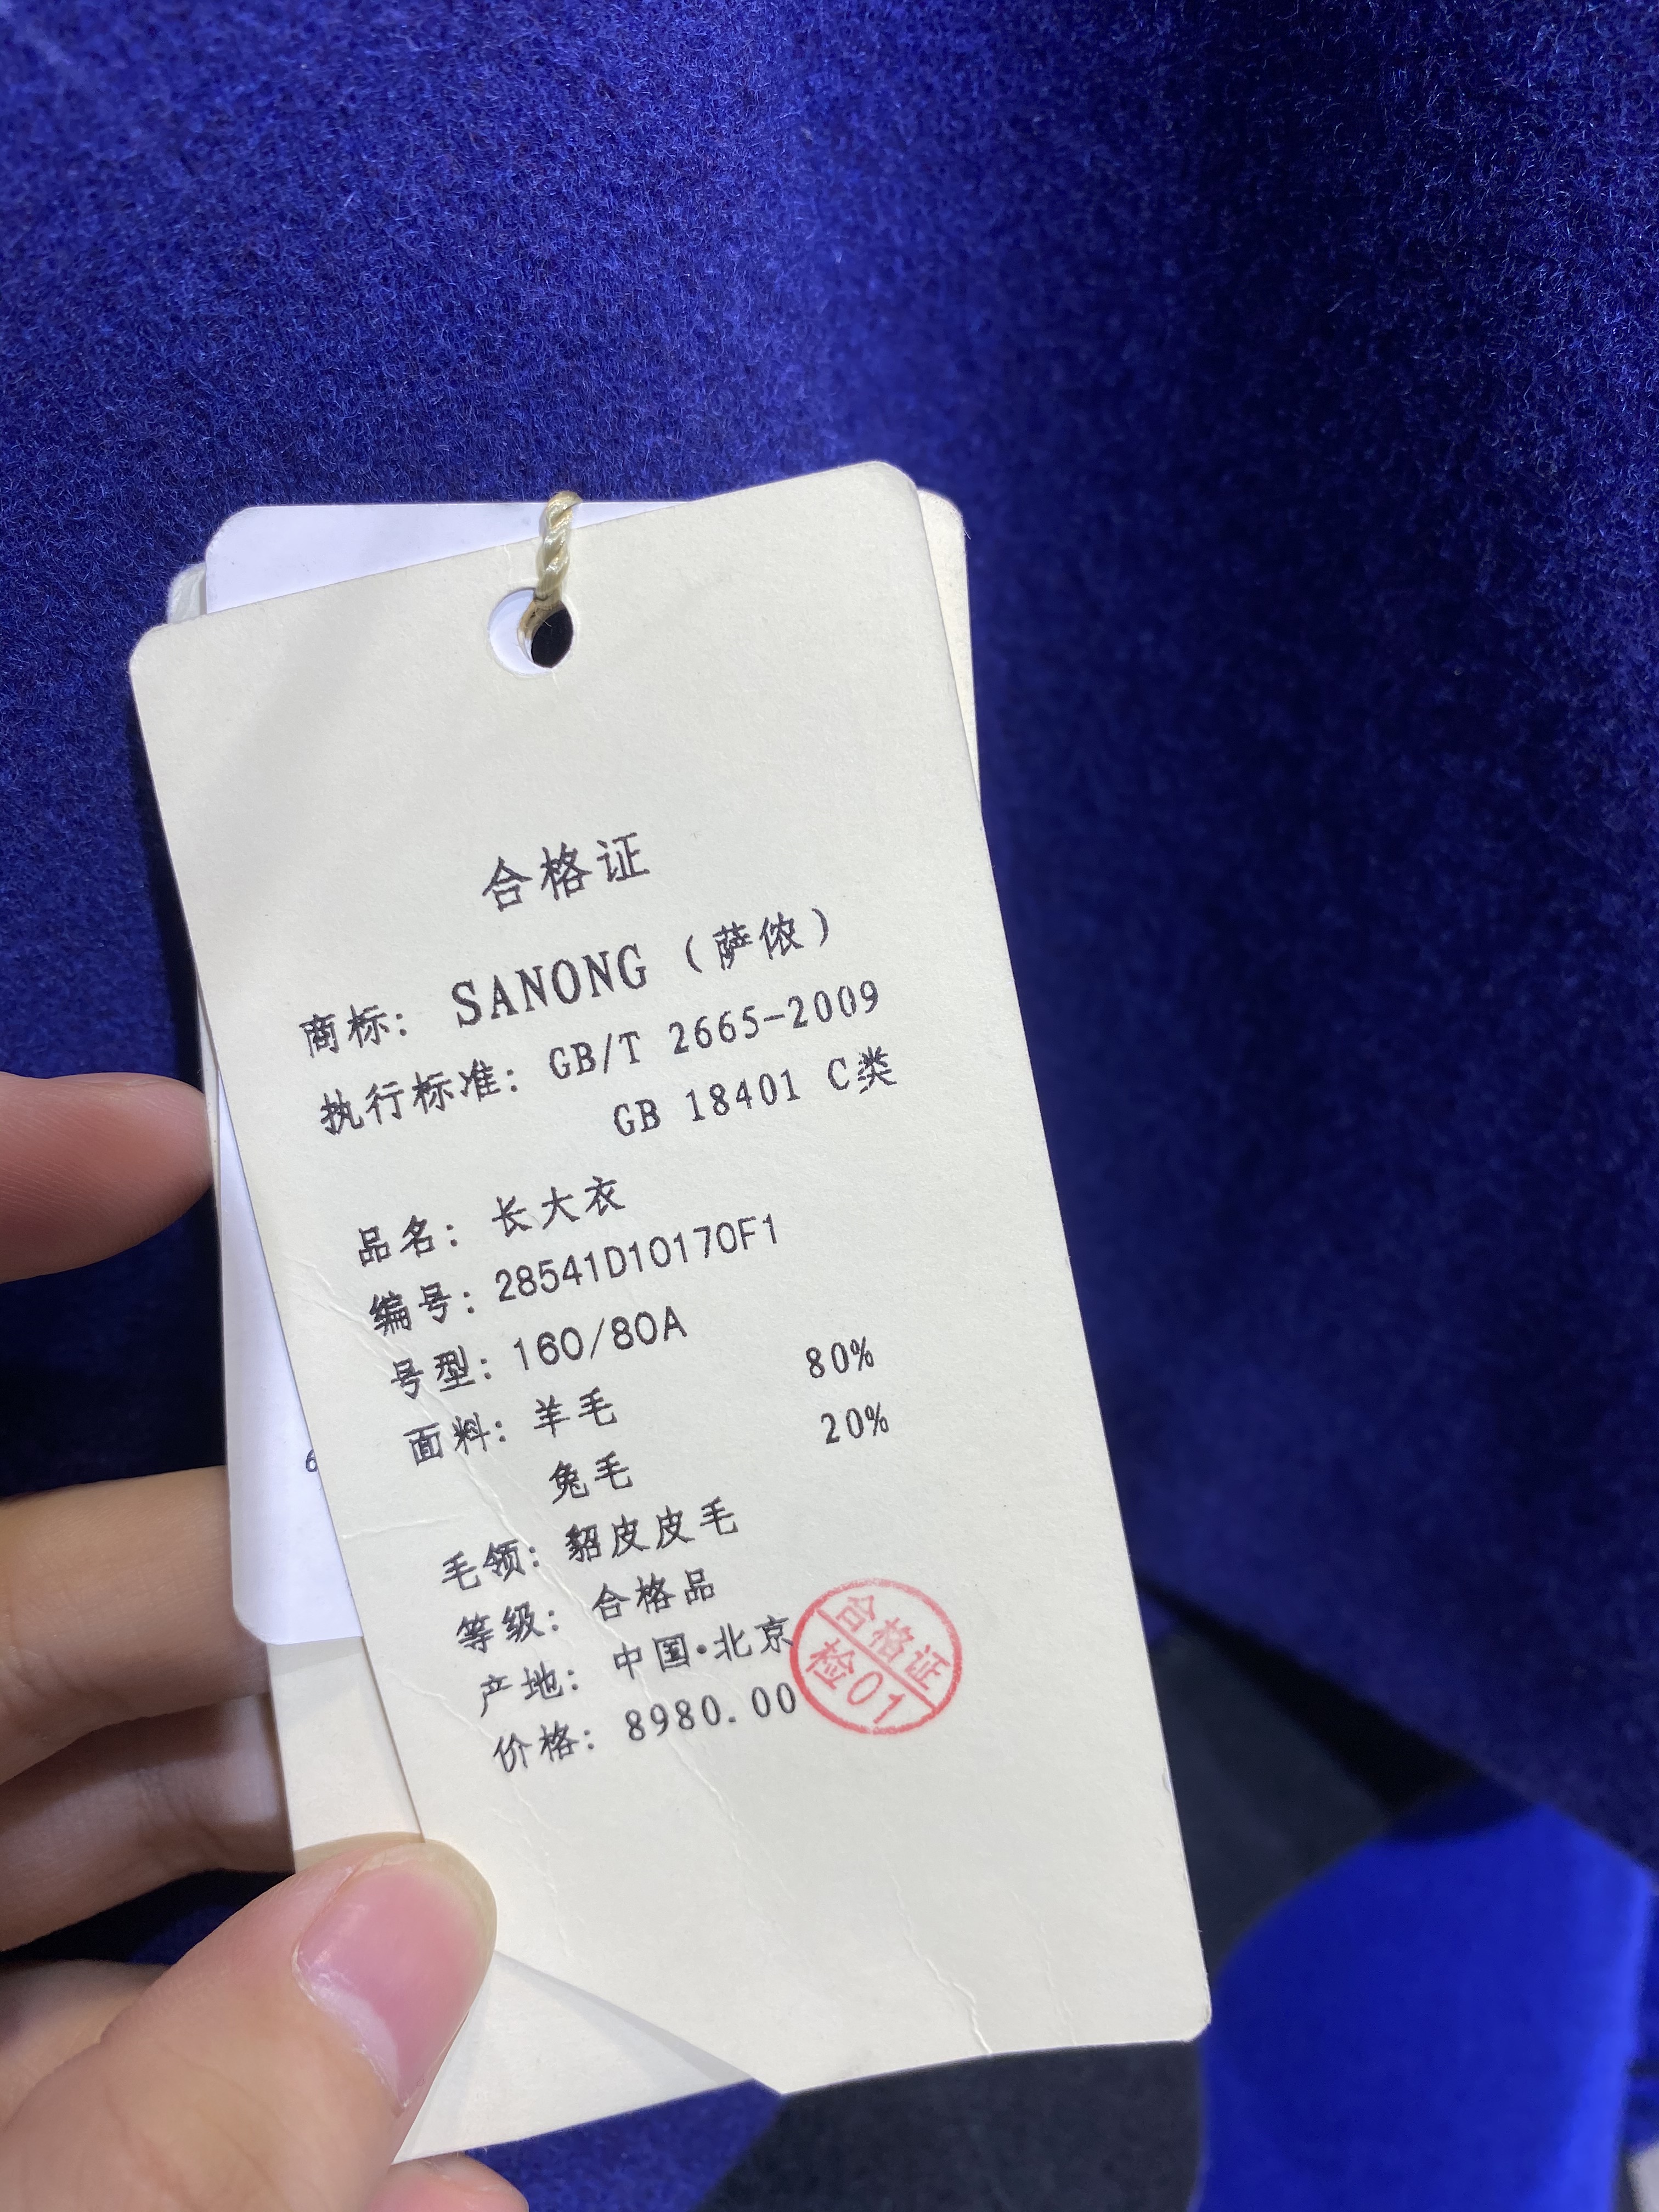 合格证
商标: SANONG (萨侬)
执行标准: GB/T 2665-2009
GB 18401 C类
品名: 长大衣
编号: 28541D10170F1
号型: 160/80A
面料: 羊毛 80%
兔毛 20%
毛领: 貂皮皮毛
等级: 合格品
产地: 中国·北京
价格: 8980.00
合格证
检01
6